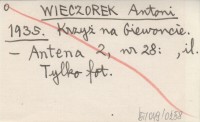 WIECZOREK Antoni
1935. Krzyż na Giewoncie.
– Antena 2, nr 28: , il.
Tylko fot.